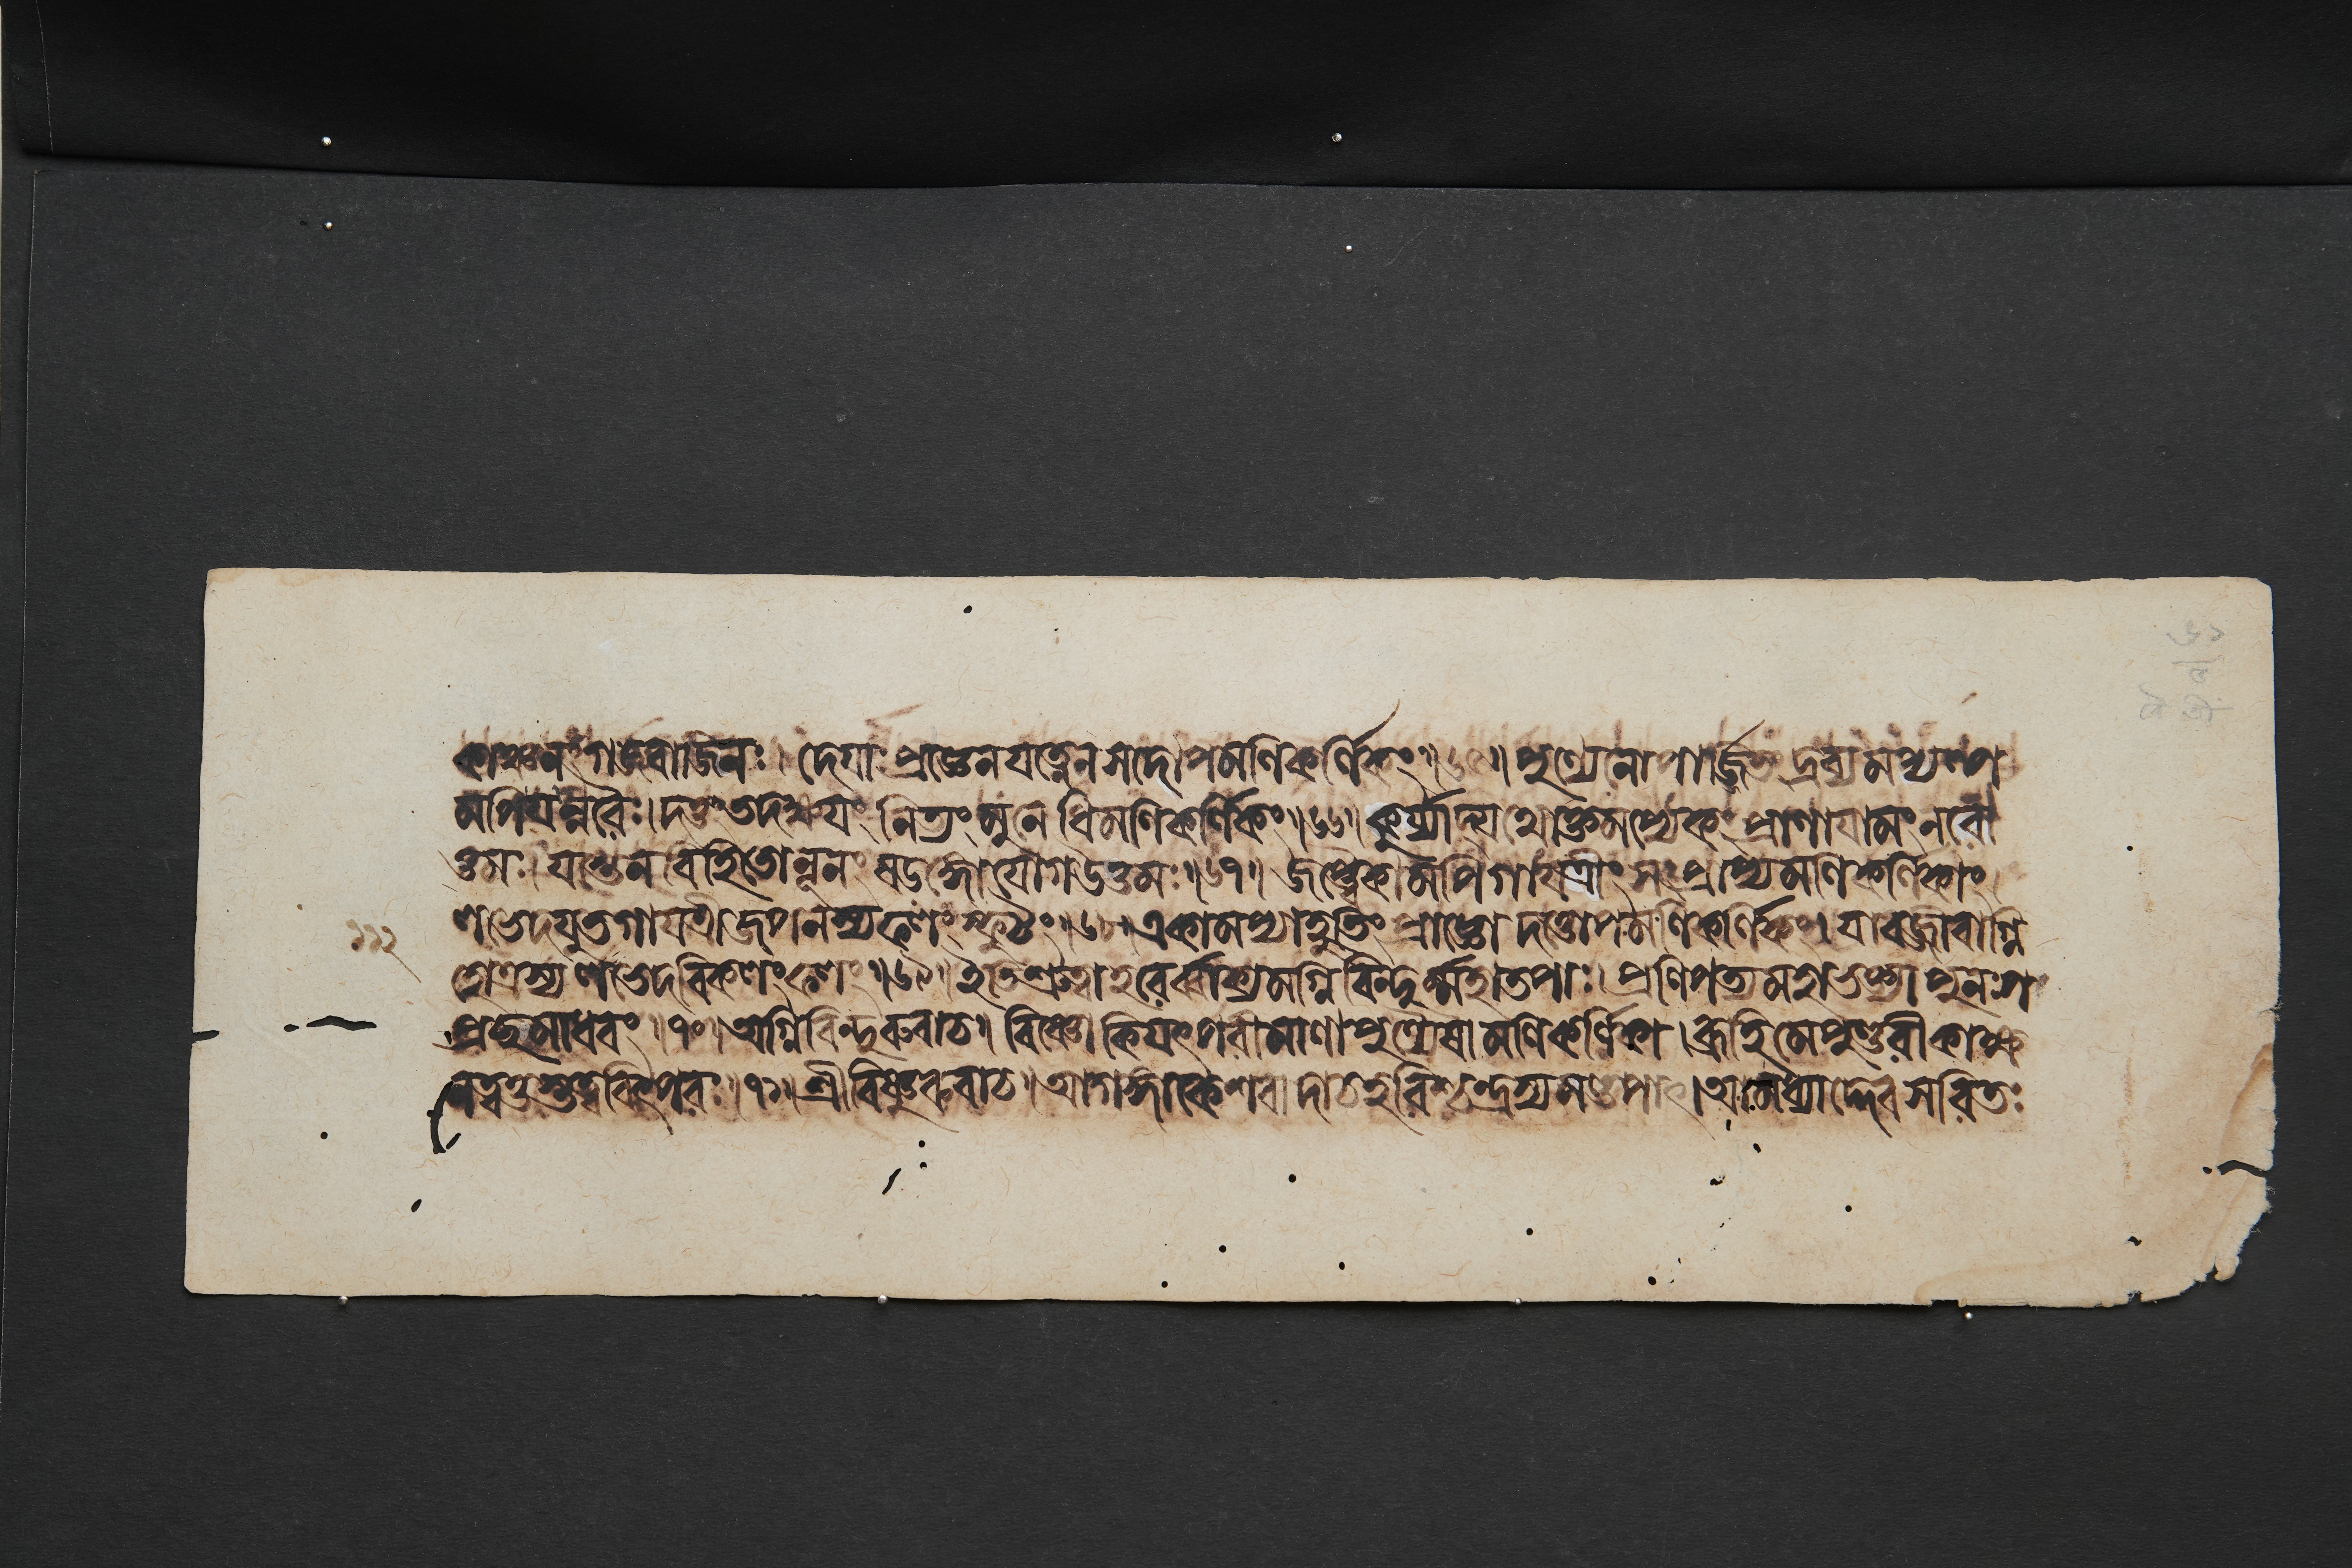 কাঞ্চনং গজবাজিনঃ। দেয়াঃ প্রাজ্ঞেন যত্নেন সদোপমণিকর্ণিকং॥৬৫॥ পুণ্যেনোপার্জ্জিতং দ্রব্যমপ্যল্প
মপি যন্নরৈঃ। দত্তং তদক্ষয়ং নিত্যং মুনেধিমণিকর্ণিকং॥৬৬॥ কুর্য্যাদ্যথোক্তমপ্যেকং প্রাণায়ামং নরো
ত্তমঃ। যস্তেন বিহিতো নূনং ষড়ঙ্গো যোগ উত্তমঃ॥৬৭॥ জপ্ত্বৈকামপি গায়ত্রীং সংপ্রাপ্য মণিকর্ণিকাং
লভেদযুতগায়ত্রীজপনস্য ফলং স্ফুটং॥৬৮॥ একামপ্যাহুতিং প্রাজ্ঞো দত্ত্বোপমণিকর্ণিকং। যাবজ্জীবাগ্নি
হোত্রস্য লভেদবিকলং ফলং॥৬৯॥ ইতি শ্রুত্বা হরের্ব্বাক্যমগ্নিবিন্দুর্ম্মহাতপাঃ। প্রণিপত্য মহাভক্ত্যা পুনঃ প
প্রচ্ছ মাধবং॥৭০॥ অগ্নিবিন্দুরুবাচ॥ বিষ্ণো কিয়ৎপরীমাণা পুণ্যৈষা মণিকর্ণিকা। ব্রূহি মে পুণ্ডরীকাক্ষ
নত্বত্তস্তত্ত্ববিৎপরঃ॥৭১॥ শ্রীবিষ্ণুরুবাচ॥ আগঙ্গাকেশবাদাচহরিশ্চন্দ্রস্য মণ্ডপাৎ। আমধ্যাদ্দেবসরিতঃ
১১২